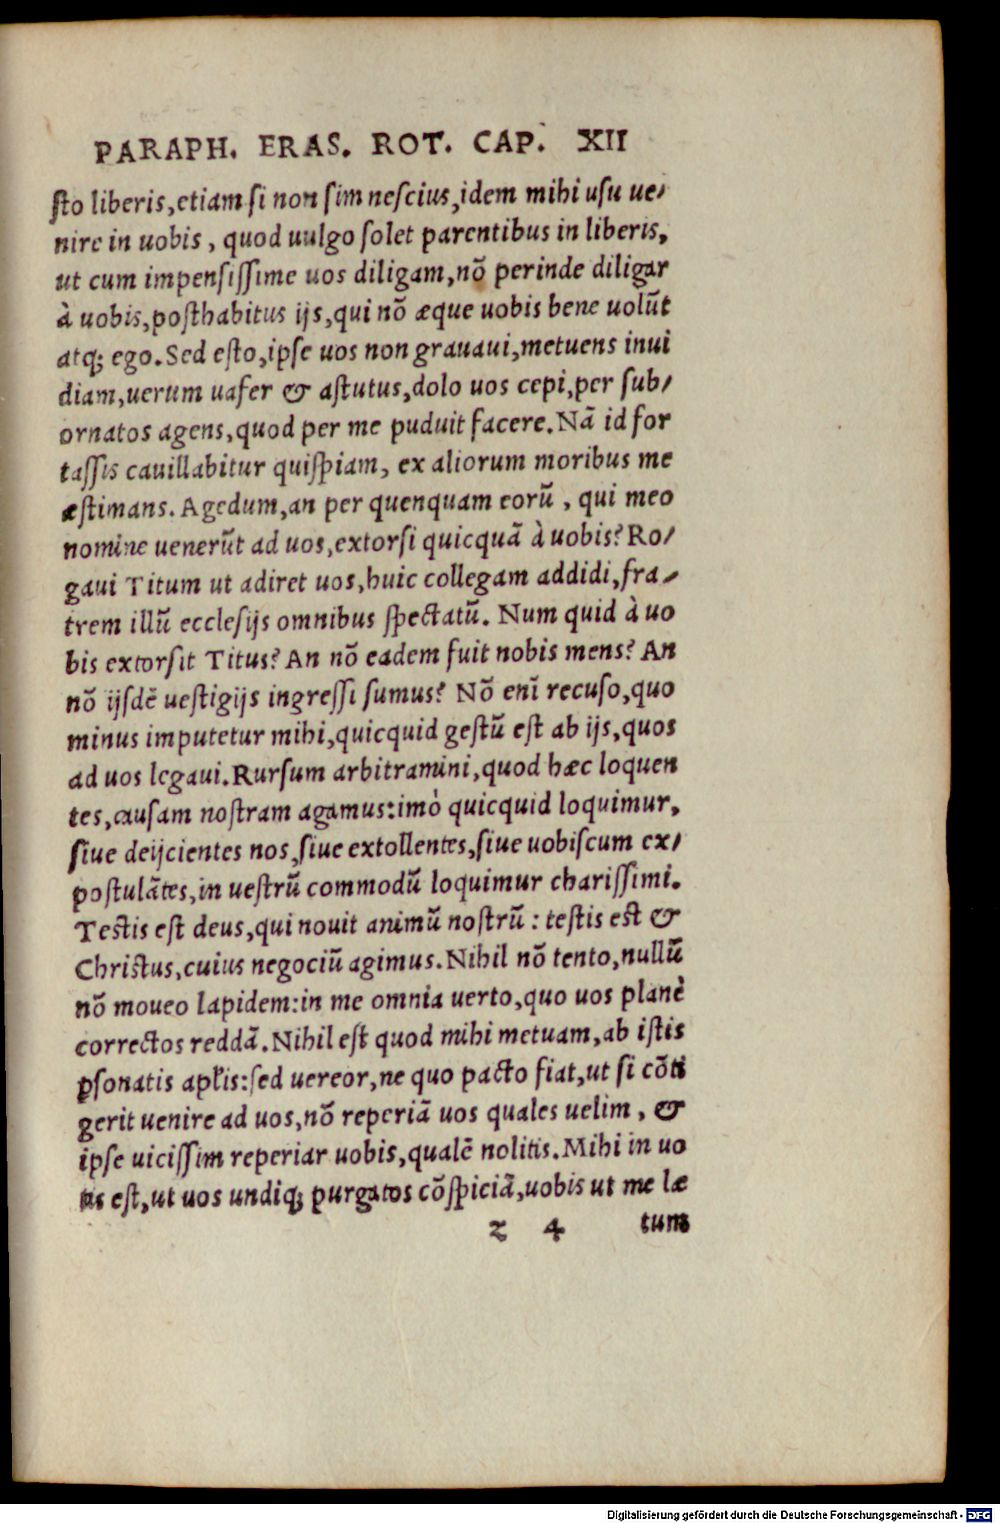 PARAPH. ERAS. ROT. CAP. XII
sto liberis, etiam si non sim nescius, idem mihi usu ue/
nire in uobis, quod uulgo solet parentibus in liberis,
ut cum impensissime uos diligam, nõ perinde diligar
à uobis, posthabitus ijs, qui nõ æque uobis bene uolũt
atq; ego. Sed esto, ipse uos non grauaui, metuens inui
diam, uerum uafer & astutus, dolo uos cepi, per sub/
ornatos agens, quod per me puduit facere. Nã id for
tassis cauillabitur quispiam, ex aliorum moribus me
æstimans. Agedum, an per quenquam eorũ, qui meo
nomine uenerũt ad uos, extorsi quicquã à uobis? Ro/
gaui Titum ut adiret uos, huic collegam addidi, fra/
trem illũ ecclesijs omnibus spectatũ. Num quid à uo
bis extorsit Titus? An nõ eadem fuit nobis mens? An
nõ ijsdẽ uestigijs ingressi sumus? Nõ enĩ recuso, quo
minus imputetur mihi, quicquid gestũ est ab ijs, quos
ad uos legaui. Rursum arbitramini, quod hæc loquen
tes, causam nostram agamus: imò quicquid loquimur,
siue deijcientes nos, siue extollentes, siue uobiscum ex/
postulãtes, in uestrũ commodũ loquimur charissimi.
Testis est deus, qui nouit animũ nostrũ: testis est &
Christus, cuius negociũ agimus. Nihil nõ tento, nullũ
nõ moueo lapidem: in me omnia uerto, quo uos planè
correctos reddã. Nihil est quod mihi metuam, ab istis
ꝑsonatis apl̃is: sed uereor, ne quo pacto fiat, ut si cõti
gerit uenire ad uos, nõ reperiã uos quales uelim, &
ipse uicissim reperiar uobis, qualẽ nolitis. Mihi in uo
tis est, ut uos undiq; purgatos cõspiciã, uobis ut me læ
z 4 tum
Digitalisierung gefördert durch die Deutsche Forschungsgemeinschaft - DFG